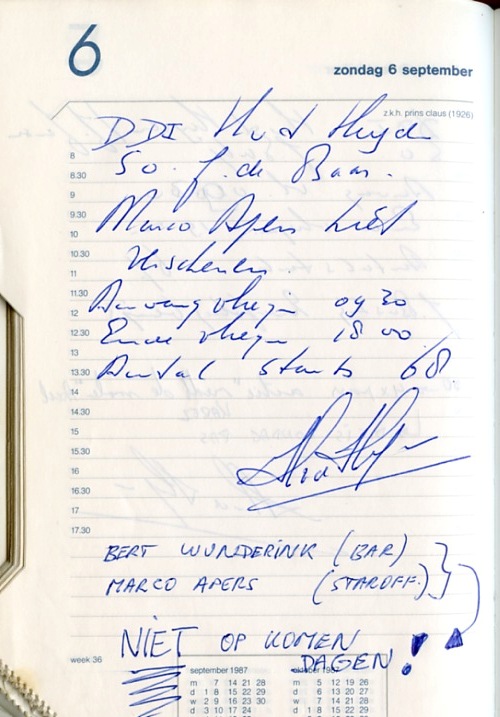 6
zondag 6 september
z.k.h. prins claus (1926)
DDI H v d Heyde
8
SO. J. de Baar.
8.30
9
9.30
Marco Apers niet
10
10.30
verschenen.
11
11.30
Aanvang vliegen 09 30
12
Einde vliegen 18 00
12.30
13
Aantal starts 68
13.30
14
14.30
15
15.30
16
16.30
17
17.30
BERT WUNDERINK (BAR)
MARCO APERS (STAROFF.)
NIET OP KOMEN
DAGEN!
week 36
september 1987
m 7 14 21 28
d 1 8 15 22 29
w 2 9 16 23 30
d 3 10 17 24
oktober 1987
m 5 12 19 26
d 6 13 20 27
w 7 14 21 28
d 1 8 15 22 29